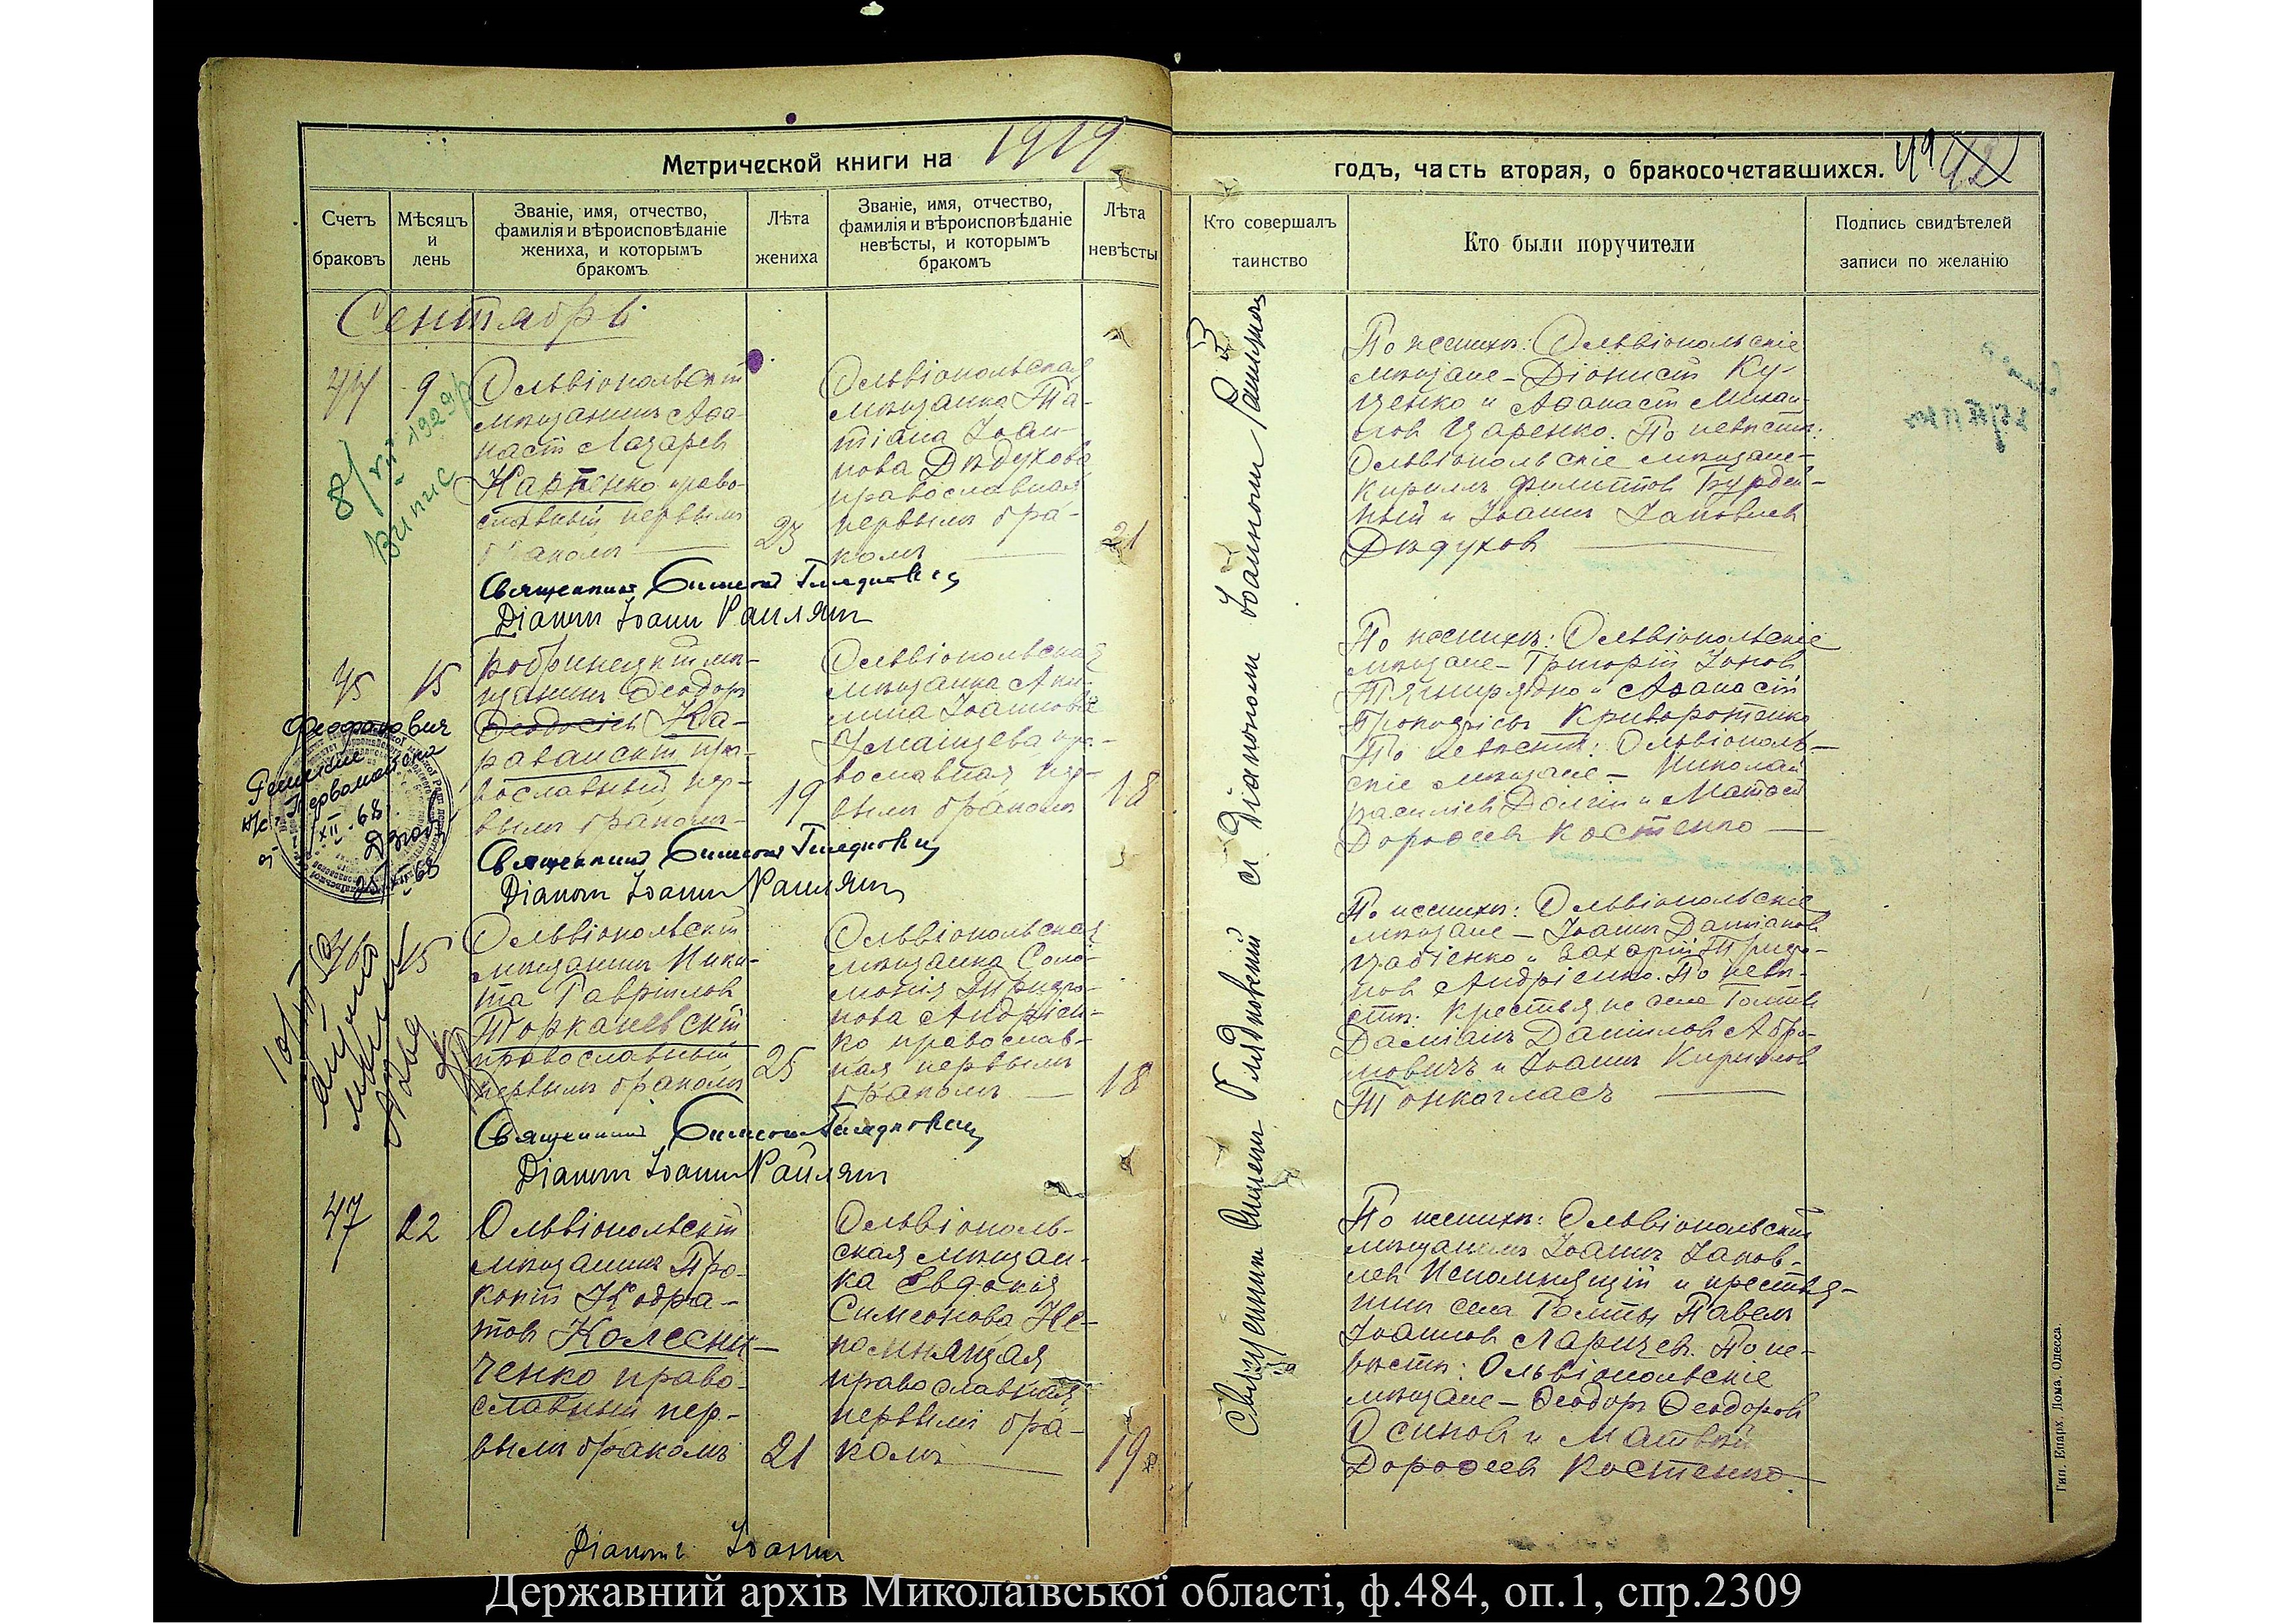 Метрической книги на 1919
годъ, часть вторая, о бракосочетавшихся.
Счетъ браковъ
Мѣсяцъ и день
Званіе, имя, отчество, фамилія и вѣроисповѣданіе жениха, и которымъ бракомъ
Лѣта жениха
Званіе, имя, отчество, фамилія и вѣроисповѣданіе невѣсты, и которымъ бракомъ
Лѣта невѣсты
Кто совершалъ таинство
Кто были поручители
Подпись свидѣтелей записи по желанію
Сентябрь
44
9
Ольвіопольскій
мѣщанинъ Аѳа-
насій Лазаревъ
Карпенко право-
славный первымъ
бракомъ
23
Ольвіопольская
мѣщанка Та-
тіана Іоан-
нова Дѣдухова
православная
первымъ бра-
комъ
21
По женихѣ: Ольвіопольскіе
мѣщане - Діонисій Ку-
ценко и Аѳанасій Михаи-
ловъ Царенко. По невѣстѣ:
Ольвіопольскіе мѣщане -
Кириллъ Филипповъ Бурдей-
ный и Іоаннъ Іаковлевъ
Дѣдуховъ
Священникъ Симеонъ
Діаконъ Іоаннъ Раилянъ
8/VII 1929 р
випис
45
15
Бобринецкій мѣ-
щанинъ Ѳеодоръ
Ѳеодосіевъ Ка-
раванскій пра-
вославный пер-
вымъ бракомъ
19
Ольвіопольская
мѣщанка Аки-
лина Іоаннова
Уманцева пра-
вославная пер-
вымъ бракомъ
18
По женихѣ: Ольвіопольскіе
мѣщане - Григорій Іоновъ
Тягнирядно и Аѳанасій
Прокопіевъ Криворотенко
По невѣстѣ: Ольвіополь-
скіе мѣщане - Николай
Василіевъ Долгій и Матѳей
Дороѳеевъ Костенко
Феофанович
Первомайск
XII-68
25/XII-68
Священникъ Симеонъ
Діаконъ Іоаннъ Раилянъ
46
15
Ольвіопольскій
мѣщанинъ Ники-
та Гавриловъ
Торкановскій
православный
первымъ бракомъ
25
Ольвіопольская
мѣщанка Соло-
монія Трифо-
нова Андріен-
ко православ-
ная первымъ
бракомъ
18
По женихѣ: Ольвіопольскіе
мѣщане - Іоаннъ Даміановъ
Цабіенко и Захарій Трифо-
новъ Андріенко. По невѣ-
стѣ: Крестьяне села Голты
Даміанъ Даніиловъ Абра-
мовичъ и Іоаннъ Кирилловъ
Тонкогласъ
Священникъ Симеонъ
Діаконъ Іоаннъ Раилянъ
47
22
Ольвіопольскій
мѣщанинъ Про-
копій Кодра-
товъ Колесни-
ченко право-
славный пер-
вымъ бракомъ
21
Ольвіополь-
ская мѣщан-
ка Евдокія
Симеонова Не-
помнящая
православная
первымъ бра-
комъ
19
По женихѣ: Ольвіопольскій
мѣщанинъ Іоаннъ Іаков-
левъ Непомнящій и крестья-
нинъ села Голты Павелъ
Іоанновъ Ларичев. По не-
вѣстѣ: Ольвіопольскіе
мѣщане - Ѳеодоръ Ѳеодоровъ
Осиповъ и Матвѣй
Дороѳеевъ Костенко
Діаконъ Іоаннъ
Священникъ Симеонъ съ Діакономъ Іоанномъ Раиляномъ
Тип. Епарх. Дома, Одесса
Державний архів Миколаївської області, ф.484, оп.1, спр.2309